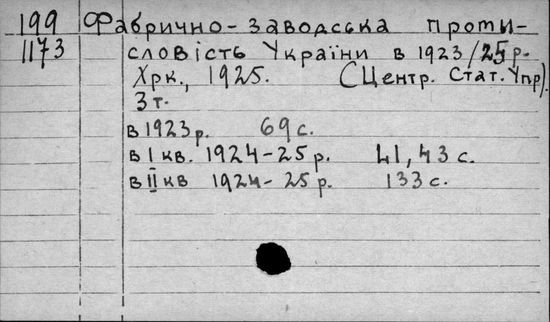 199 Фабрично-заводська проти-
1173 словість України в 1923/25 р.
Хрк., 1925. (Центр. Стат. Упр).
3 т.
в 1923 р. 69 с.
в I кв. 1924-25 р. 41, 43 с.
в II кв 1924-25 р. 133 с.